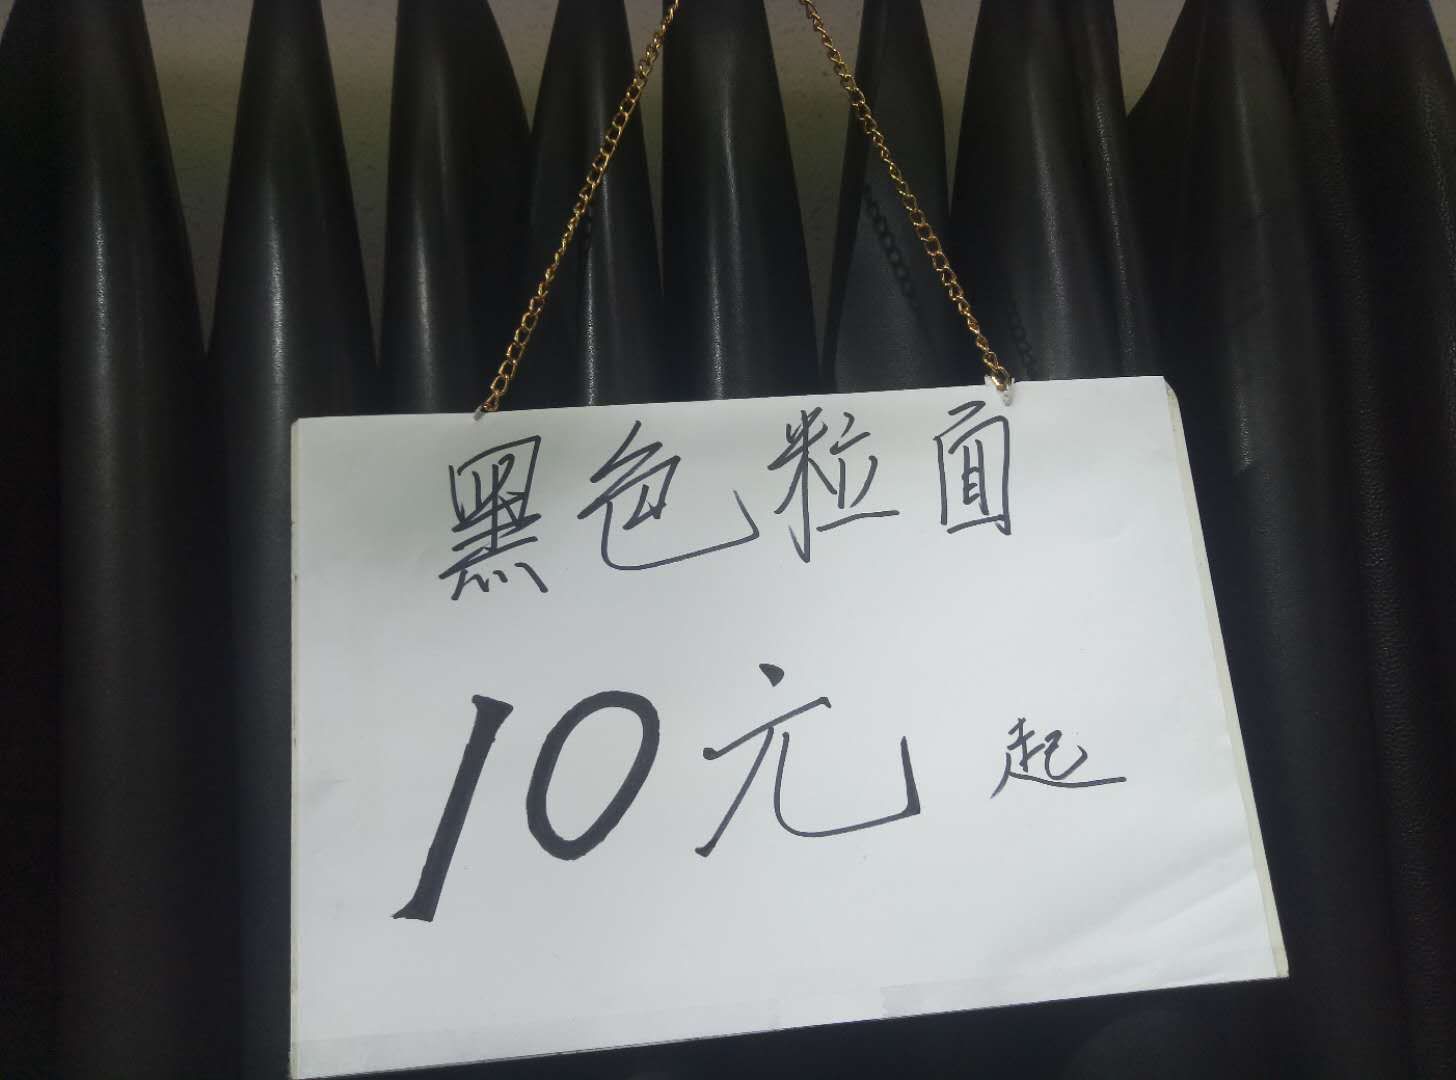 黑色粒面
10元起